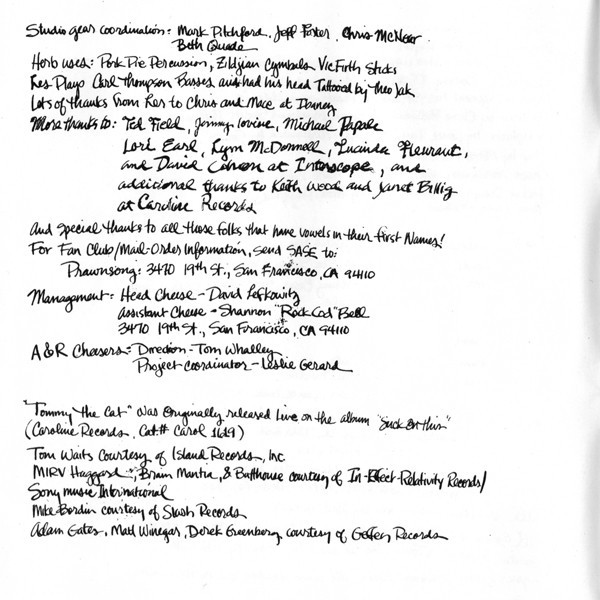 Studio gear coordination: Mark Pitchford, Jeff Porter, Chris McNear.
Beth Quade
Herb uses: Pork Pie Percussion, Zildjian Cymbals. Vic Firth Sticks
Les Plays Carl Thompson Basses and had his head Tattooed by Theo Jak
Lots of thanks from Les to Chris and Mace at Danney
More thanks to: Ted Field, Jimmy Iovine, Michael Papale
Lori Earl, Lynn McDonnell, Lucinda Fleurant,
and David Cohen at Interscope, and
additional thanks to Keith Wood and Janet Billig
at Caroline Records
And special thanks to all those folks that have vowels in their first Names!
For Fan Club/Mail-Order Information, send SASE to:
Prawnsong: 3470 19th St., San Francisco, CA 94110
Management: Head Cheese - David Lefkowitz
Assistant Cheese - Shannon "Rock Cod" Bell
3470 19th St., San Francisco, CA 94110
A&R Cheesers: Direction - Tom Whalley
Project coordinator - Leslie Gerard
"Tommy the Cat" was originally released live on the album "Suck on this"
(Caroline Records, Cat# Carol 1619)
Tom Waits courtesy of Island Records, Inc
MIRV Haggard, Brain Mantia, & Butthouse courtesy of In-Effect-Relativity Records/
Sony music International
Mike Bordin courtesy of Slash Records
Adam Gates, Matt Winegar, Derek Greenberg courtesy of Geffen Records